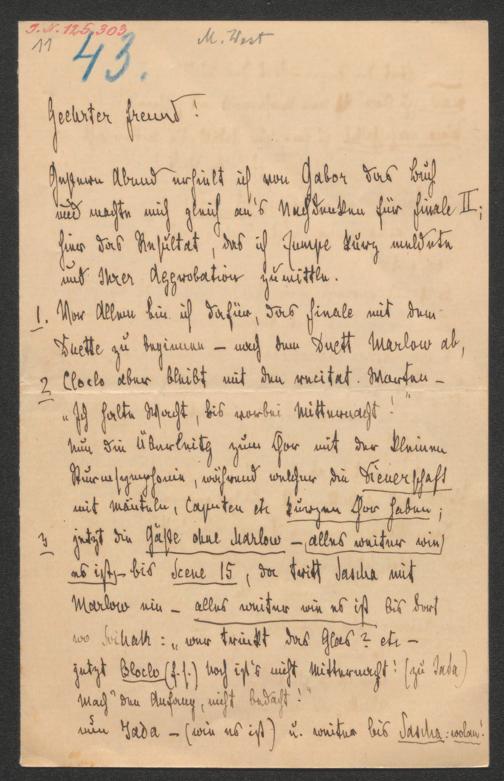 I.N. 125.303
11
43.
M. West
Geehrter Freund!
Gestern Abend erhielt ich von Gabor das Buch
und machte mich gleich an's Nachdenken für Finale II;
hier das Resultat, das ich Jumpe kurz meldete
und Ihrer Approbation zumittle.
1. Vor Allem bin ich dafür, das Finale mit dem
Duette zu beginnen – nach dem Duett Marlow ab,
2 Cloclo aber bleibt mit den recitat. Worten –
"Ich halte Wacht, bis vorbei Mitternacht!"
Nun die Überleitg zum Chor mit der kleinen
Sturmsymphonie, während welcher die Dienerschaft
mit Mänteln, Caputen etc kurzen Chor haben;
3 jetzt die Gäste ohne Marlow – alles weiter wie
es ist, – bis Scene 15, da tritt Sascha mit
Marlow ein – alles weiter wie es ist bis dort
wo : "wer trinkt das Glas? etc –
jetzt Cloclo (f. s.) Noch ist's nicht Mitternacht! (zu Jada)
Mach' den Anfang, nicht bedacht!"
nun Jada – (wie es ist) u. weiter bis Sascha: wolan!